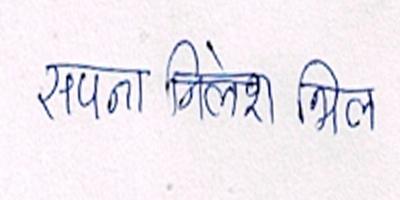 सपना निलेश भिल